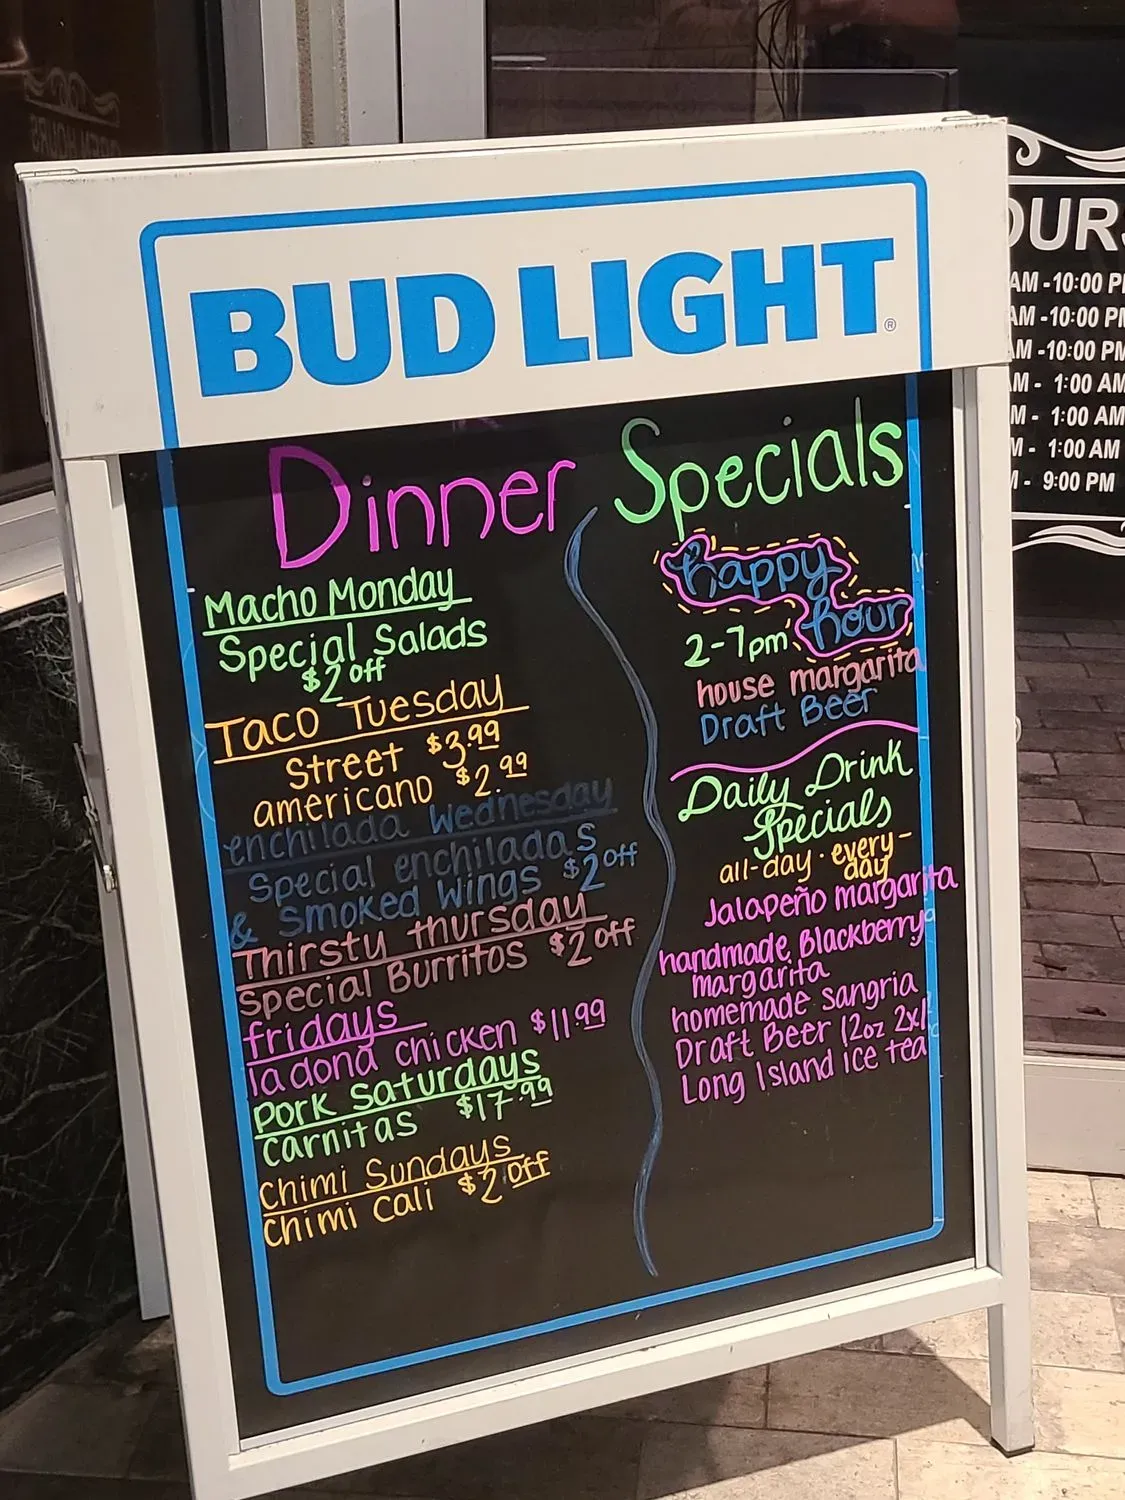 BUD LIGHT®
Dinner Specials
Macho Monday
Special Salads
$2 off
Taco Tuesday
Street $3.99
americano $2.99
enchilada Wednesday
Special enchiladas
& Smoked Wings $2 off
Thirsty thursday
Special Burritos $2 off
fridays
la dona chicken $11.99
Pork Saturdays
Carnitas $17.99
Chimi Sundays
Chimi Cali $2 off
happy
hour
2-7pm
house margarita
Draft Beer
Daily Drink
Specials
all-day • every-
day
Jalapeño margarita
handmade Blackberry
margarita
homemade sangria
Draft Beer 12oz 2x1
Long Island ice tea
OURS
AM - 10:00 P
AM - 10:00 PM
AM - 10:00 PM
M - 1:00 AM
M - 1:00 AM
M - 1:00 AM
M - 9:00 PM